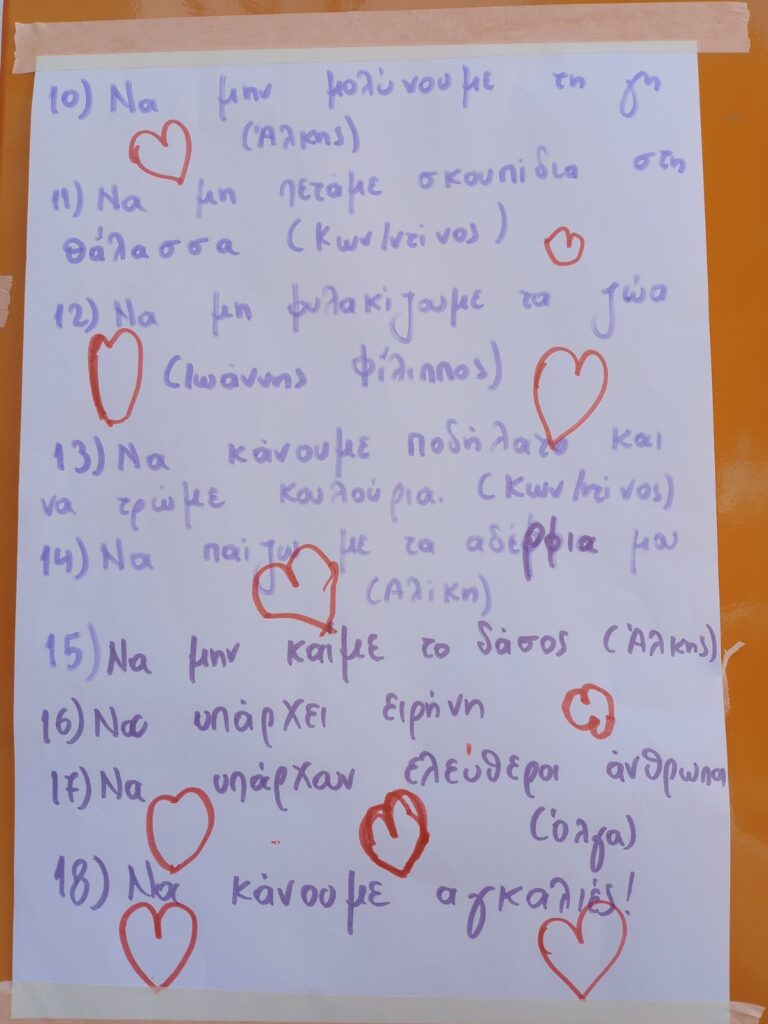 10) Να μην μολύνουμε τη γη
(Άλκης)
11) Να μη πετάμε σκουπίδια στη
θάλασσα (Κων/ντίνος)
12) Να μη φυλακίζουμε τα ζώα
(Ιωάννης Φίλιππος)
13) Να κάνουμε ποδήλατο και
να τρώμε κουλούρια. (Κων/ντίνος)
14) Να παίζω με τα αδέρφια μου
(Αλίκη)
15) Να μην καίμε το δάσος (Άλκης)
16) Να υπάρχει ειρήνη
17) Να υπάρχουν ελεύθεροι άνθρωποι
(Όλγα)
18) Να κάνουμε αγκαλιές!